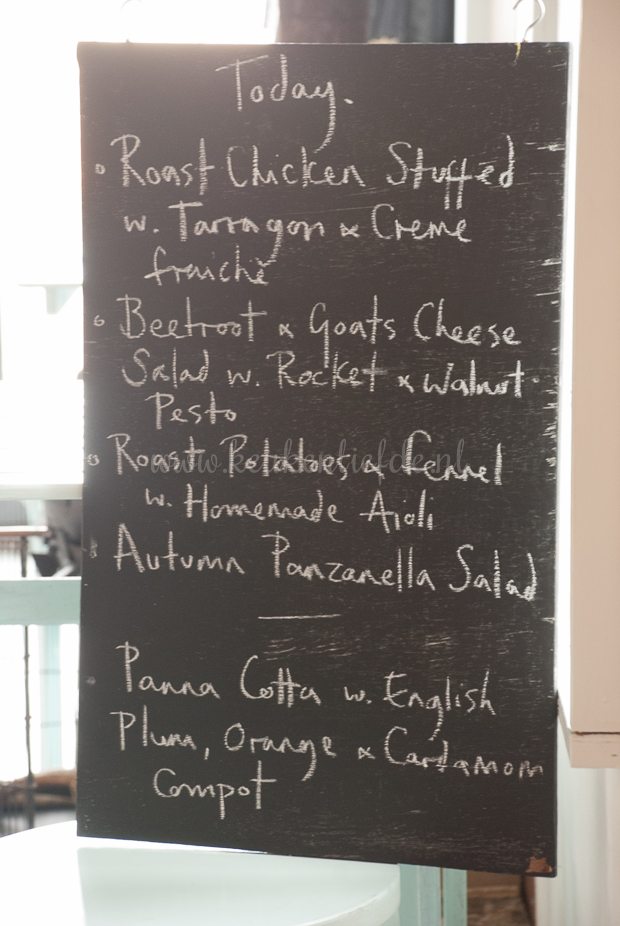 Today.
Roast Chicken Stuffed
w. Tarragon & Creme
fraiche
Beetroot & Goats Cheese
Salad w. Rocket & Walnut
Pesto
Roast Potatoes & Fennel
www.keukenliefde.nl
w. Homemade Aioli
Autumn Panzanella Salad
Panna Cotta w. English
Plum, Orange & Cardamom
Compot